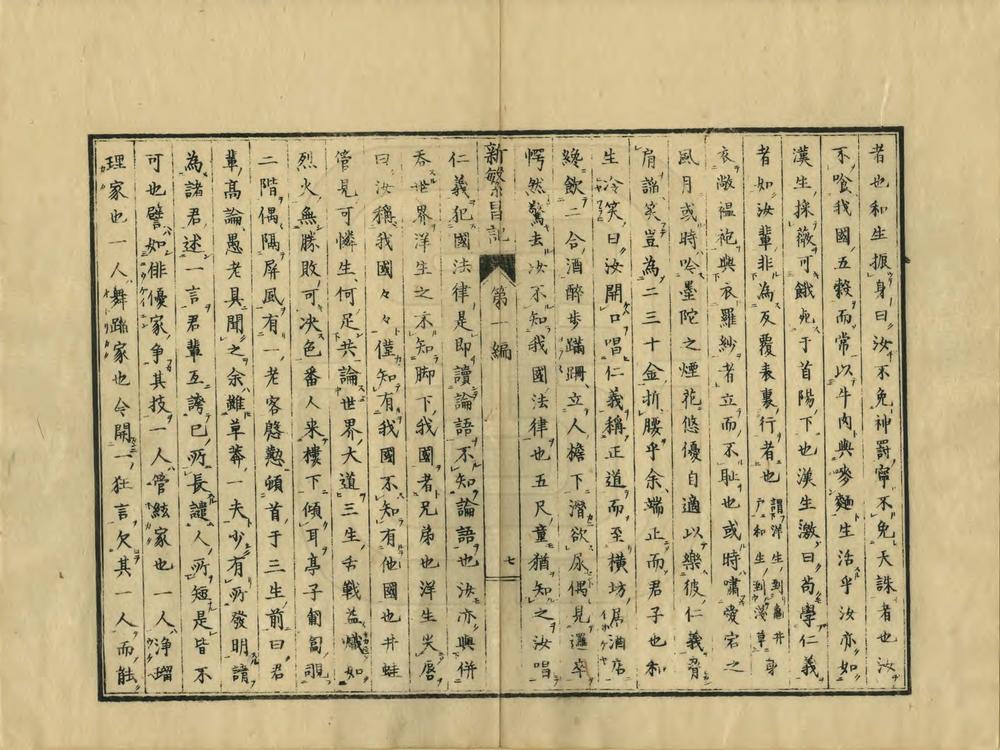 者也和生振身曰汝不免神罸寧不免天誅者也汝
不喰我國五穀而常以牛肉與麥麵生活乎汝亦如
漢生採薇可餓死于首陽下也漢生激曰苟學仁義
者如汝輩非為反覆表裏行者也謂洋生到龜井戸和生到淺草
衣敝褞袍與衣羅紗者立而不耻也或時嘯愛宕之
風月或時吟墨陀之煙花悠優自適以樂彼仁義脅
肩謟笑豈為二三十金折腰乎余端正而君子也和
生冷笑曰汝開口唱仁義稱正道而至横坊居酒店
纔飲二合酒醉歩蹣跚立人檐下潜欲尿偶見邏卒
愕然驚去汝不知我國法律也五尺童猶知之汝唱
新繁昌記 第一編 七
仁義犯國法律是即讀論語不知論語也汝亦與併
吞世界洋生之不知脚下我國者兄弟也洋生失唇
曰汝稱我國々々僅知有我國不知有他國也井蛙
管見可憐生何足共論世界大道三生舌戰益熾如
烈火無勝敗可决色番人来樓下傾耳亭子匍匐覗
二階偶隔屏風有一老客慇懃傾首于三生前曰君
輩高論愚老具聞之余雖草莽一夫少有所發明請
為諸君述一言君輩互誇已所長譴人所短是皆不
可也譬如俳優家争其技一人管絃家也一人浄瑠
理家也一人舞踊家也令開一狂言欠其一人而能